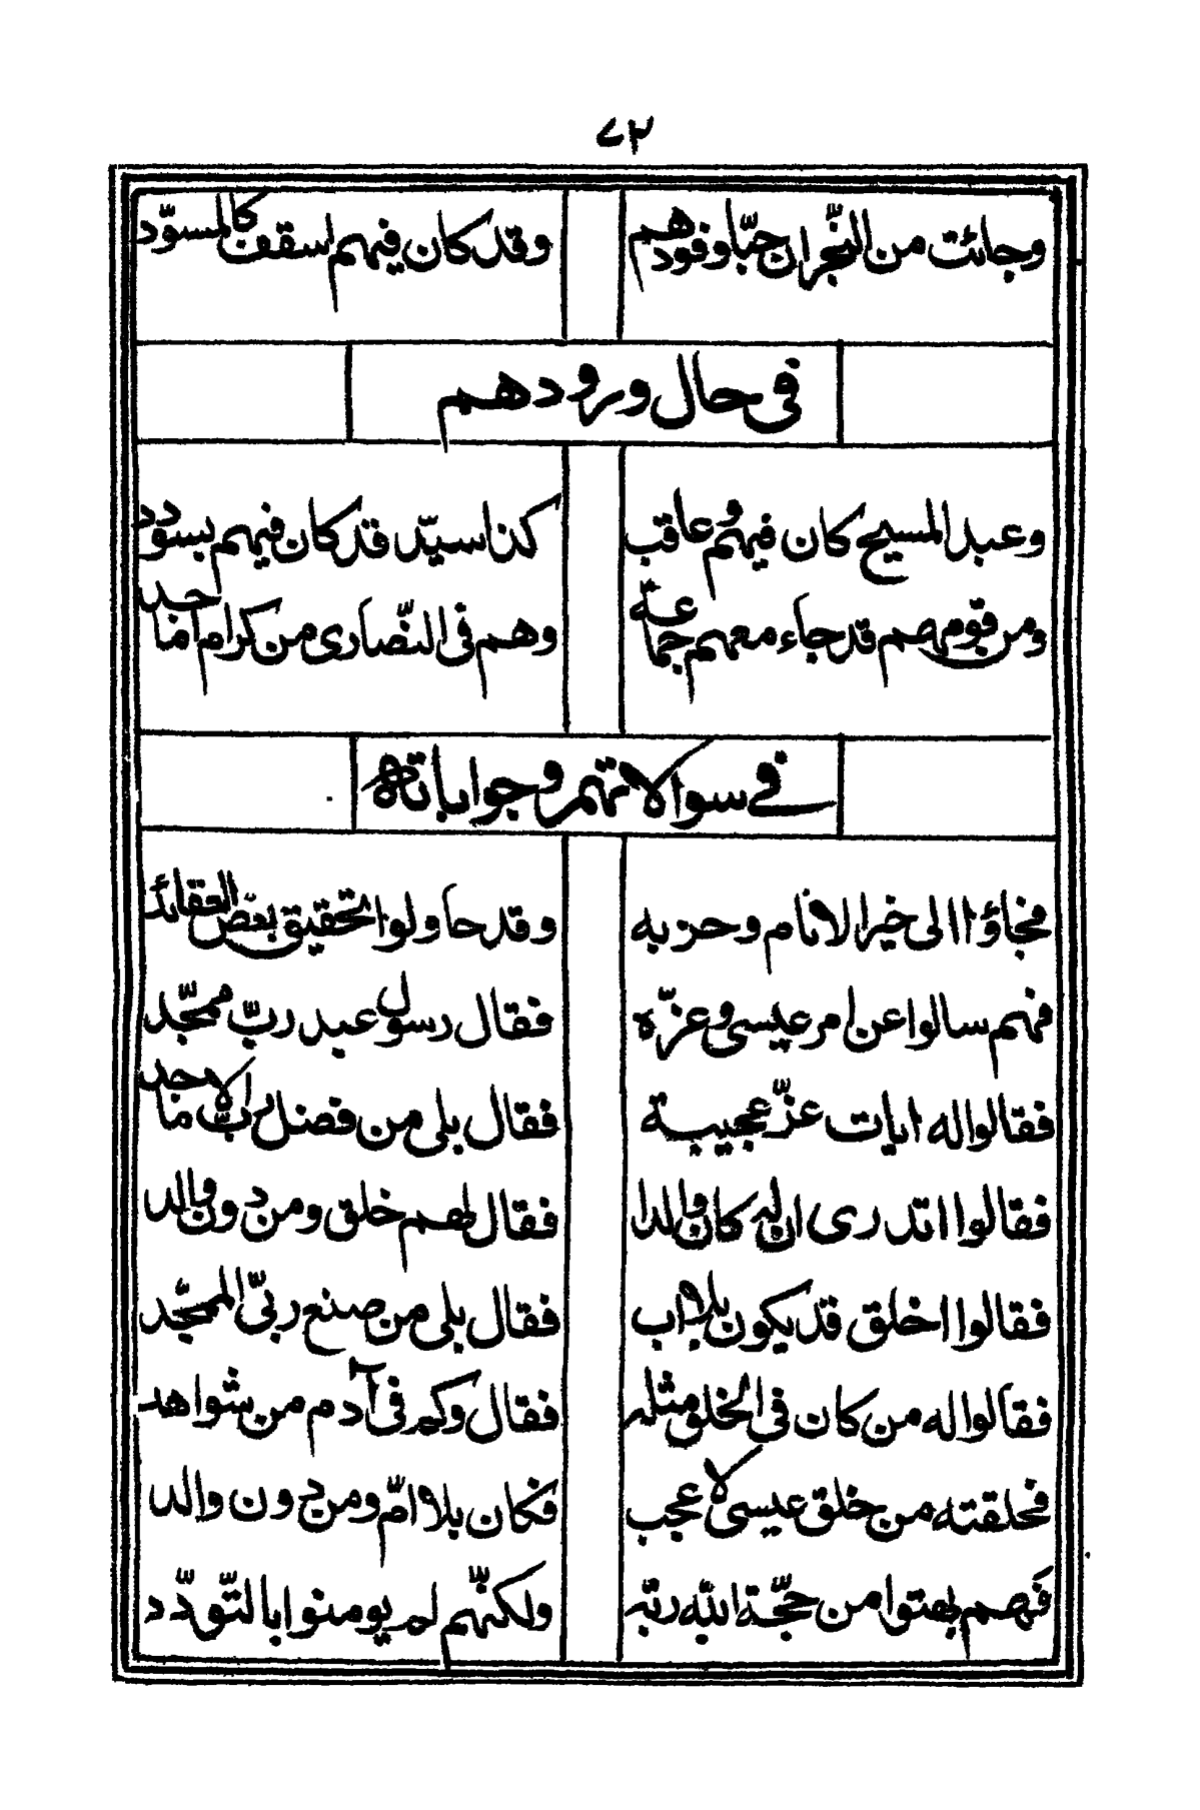 ٧٢
وجائت من النّجران حبّا وفودهم وقد كان فيهم اسقف كالمسوّد
فى حال ورودهم
وعبد المسيح كان فيهم وعاقب كذا سيّد قد كان فيهم بسودد
ومن قومهم قد جاء معهم جماعة وهم فى النّصارى من كرام اماجد
فى سوالاتهم وجواباته
فجاؤا الى خير الانام وحزبه وقد حاولوا تحقيق بعض العقائد
فهم سالوا عن امر عيسى وعزّه فقال رسول عبد ربّ ممجّد
فقالوا له ايات عزّ عجيبة فقال بلى من فضل ربّ الاماجد
فقالوا اتدرى ان له كان والدا فقال لهم خلق ومن دون والد
فقالوا اخلق قد يكون بلا اب فقال بلى من صنع ربّى الممجّد
فقالوا له من كان فى الخلق مثله فقال وكم فى آدم من شواهد
فخلقته من خلق عيسى لاعجب فكان بلا امّ ومن دون والد
فهم بهتوا من حجّة اللّه ربّه ولكنّهم لم يومنوا بالتّودّد